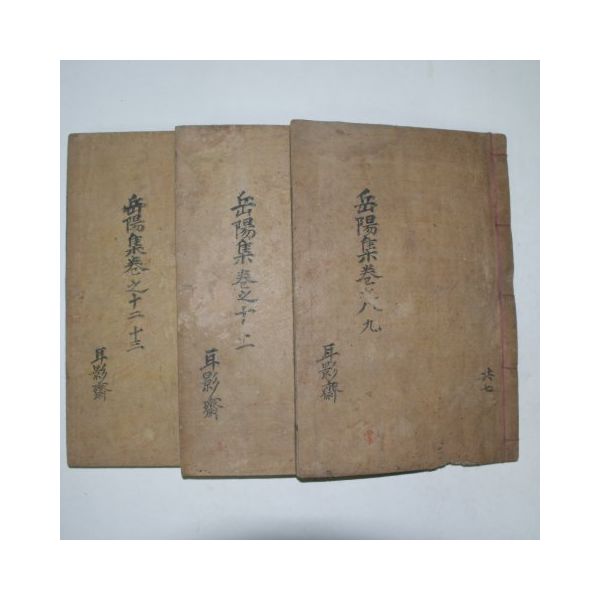 岳陽集卷之八九
耳影齋
共七
岳陽集卷之十十一
耳影齋
岳陽集卷之十二十三
耳影齋